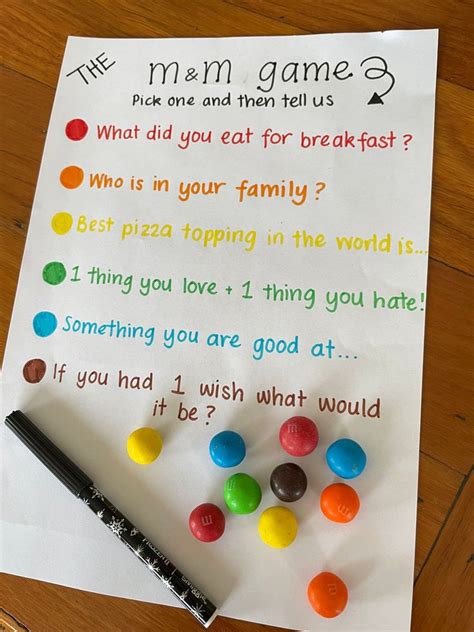 THE m & m game
Pick one and then tell us
What did you eat for breakfast?
Who is in your family?
Best pizza topping in the world is...
1 thing you love + 1 thing you hate!
Something you are good at...
If you had 1 wish what would
it be?
m
m
FROZEN II